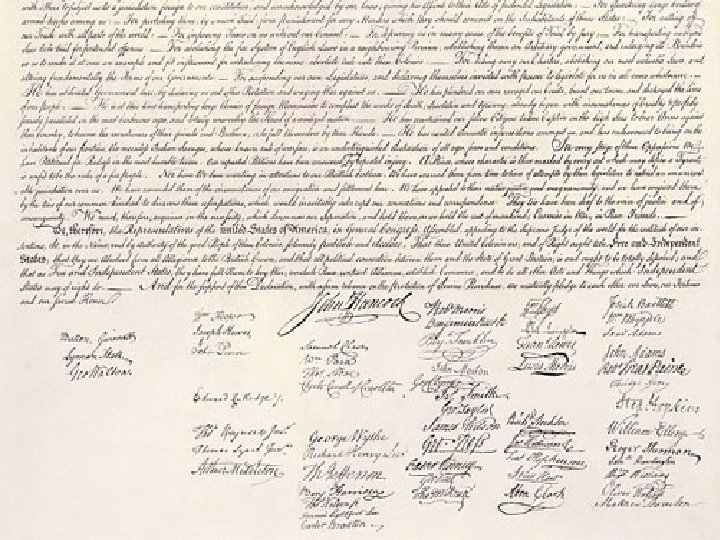 with others to subject us to a jurisdiction foreign to our constitution, and unacknowledged by our laws; giving his Assent to their Acts of pretended Legislation: — For quartering large bodies of
armed troops among us: — For protecting them, by a mock Trial, from punishment for any Murders which they should commit on the Inhabitants of these States: — For cutting off
our Trade with all parts of the world: — For imposing Taxes on us without our Consent: — For depriving us in many cases, of the benefits of Trial by Jury: — For transporting us beyond
Seas to be tried for pretended offences: — For abolishing the free System of English Laws in a neighbouring Province, establishing therein an Arbitrary government, and enlarging its Boundaries
so as to render it at once an example and fit instrument for introducing the same absolute rule into these Colonies: — For taking away our Charters, abolishing our most valuable Laws, and
altering fundamentally the Forms of our Governments: — For suspending our own Legislatures, and declaring themselves invested with power to legislate for us in all cases whatsoever. —
He has abdicated Government here, by declaring us out of his Protection and waging War against us. — He has plundered our seas, ravaged our Coasts, burnt our towns, and destroyed the lives
of our people. — He is at this time transporting large Armies of foreign Mercenaries to compleat the works of death, desolation and tyranny, already begun with circumstances of Cruelty & perfidy
scarcely paralleled in the most barbarous ages, and totally unworthy the Head of a civilized nation. — He has constrained our fellow Citizens taken Captive on the high Seas to bear Arms against
their Country, to become the executioners of their friends and Brethren, or to fall themselves by their Hands. — He has excited domestic insurrections amongst us, and has endeavoured to bring on the
inhabitants of our frontiers, the merciless Indian Savages, whose known rule of warfare, is an undistinguished destruction of all ages, sexes and conditions. In every stage of these Oppressions We
have Petitioned for Redress in the most humble terms: Our repeated Petitions have been answered only by repeated injury. A Prince, whose character is thus marked by every act which may define a Tyrant,
is unfit to be the ruler of a free people. Nor have We been wanting in attentions to our Brittish brethren. We have warned them from time to time of attempts by their legislature to extend an unwarrant-
able jurisdiction over us. We have reminded them of the circumstances of our emigration and settlement here. We have appealed to their native justice and magnanimity, and we have conjured them
by the ties of our common kindred to disavow these usurpations, which, would inevitably interrupt our connections and correspondence. They too have been deaf to the voice of justice and of
consanguinity. We must, therefore, acquiesce in the necessity, which denounces our Separation, and hold them, as we hold the rest of mankind, Enemies in War, in Peace Friends. —
We, therefore, the Representatives of the united States of America, in General Congress, Assembled, appealing to the Supreme Judge of the world for the rectitude of our in-
tentions, do, in the Name, and by Authority of the good People of these Colonies, solemnly publish and declare, That these United Colonies are, and of Right ought to be Free and Independent
States; that they are Absolved from all Allegiance to the British Crown, and that all political connection between them and the State of Great Britain, is and ought to be totally dissolved; and
that as Free and Independent States, they have full Power to levy War, conclude Peace, contract Alliances, establish Commerce, and to do all other Acts and Things which Independent
States may of right do. — And for the support of this Declaration, with a firm reliance on the protection of divine Providence, we mutually pledge to each other our Lives, our Fortunes
and our sacred Honor.
John Hancock
Button Gwinnett
Lyman Hall
Geo Walton
Wm Hooper
Joseph Hewes
John Penn
Edward Rutledge
Thos Heyward Junr
Thomas Lynch Junr
Arthur Middleton
Samuel Chase
Wm Paca
Thos Stone
Charles Carroll of Carrollton
George Wythe
Richard Henry Lee
Th Jefferson
Benj Harrison
Thos Nelson jr
Francis Lightfoot Lee
Carter Braxton
Robt Morris
Benjamin Rush
Benj Franklin
John Morton
Geo Clymer
Jas Smith
Geo Taylor
James Wilson
Geo Ross
Caesar Rodney
Geo Read
Tho M:Kean
Wm Floyd
Phil Livingston
Frans Lewis
Lewis Morris
Richd Stockton
Jno Witherspoon
Fras Hopkinson
John Hart
Abra Clark
Josiah Bartlett
Wm Whipple
Saml Adams
John Adams
Robt Treat Paine
Elbridge Gerry
Step Hopkins
William Ellery
Roger Sherman
Saml Huntington
Wm Williams
Oliver Wolcott
Matthew Thornton